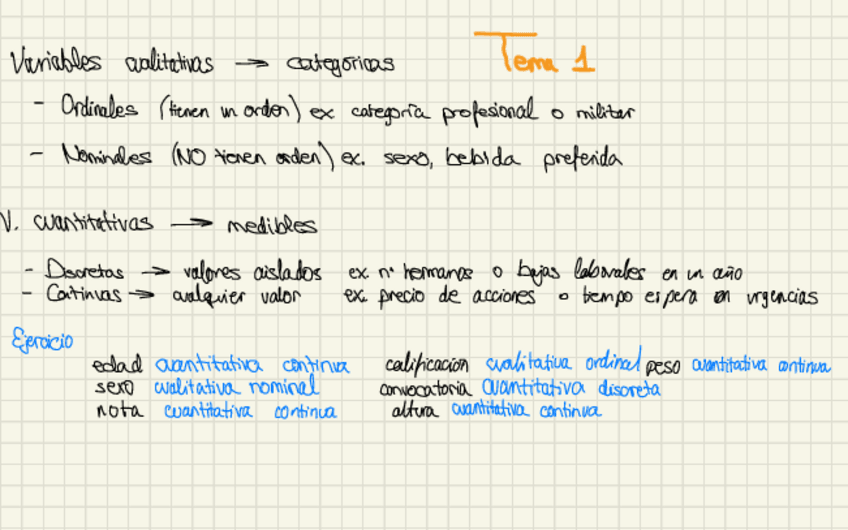 Tema 1
Variables cualitativas → categóricas
- Ordinales (tienen un orden) ex categoría profesional o militar
- Nominales (NO tienen orden) ex. sexo, bebida preferida
V. cuantitativas → medibles
- Discretas → valores aislados ex nº hermanos o bajas laborales en un año
- Continuas → cualquier valor ex. precio de acciones o tiempo espera en urgencias
Ejercicio
edad cuantitativa continua calificación cualitativa ordinal peso cuantitativa continua
sexo cualitativa nominal convocatoria cuantitativa discreta
nota cuantitativa continua altura cuantitativa continua